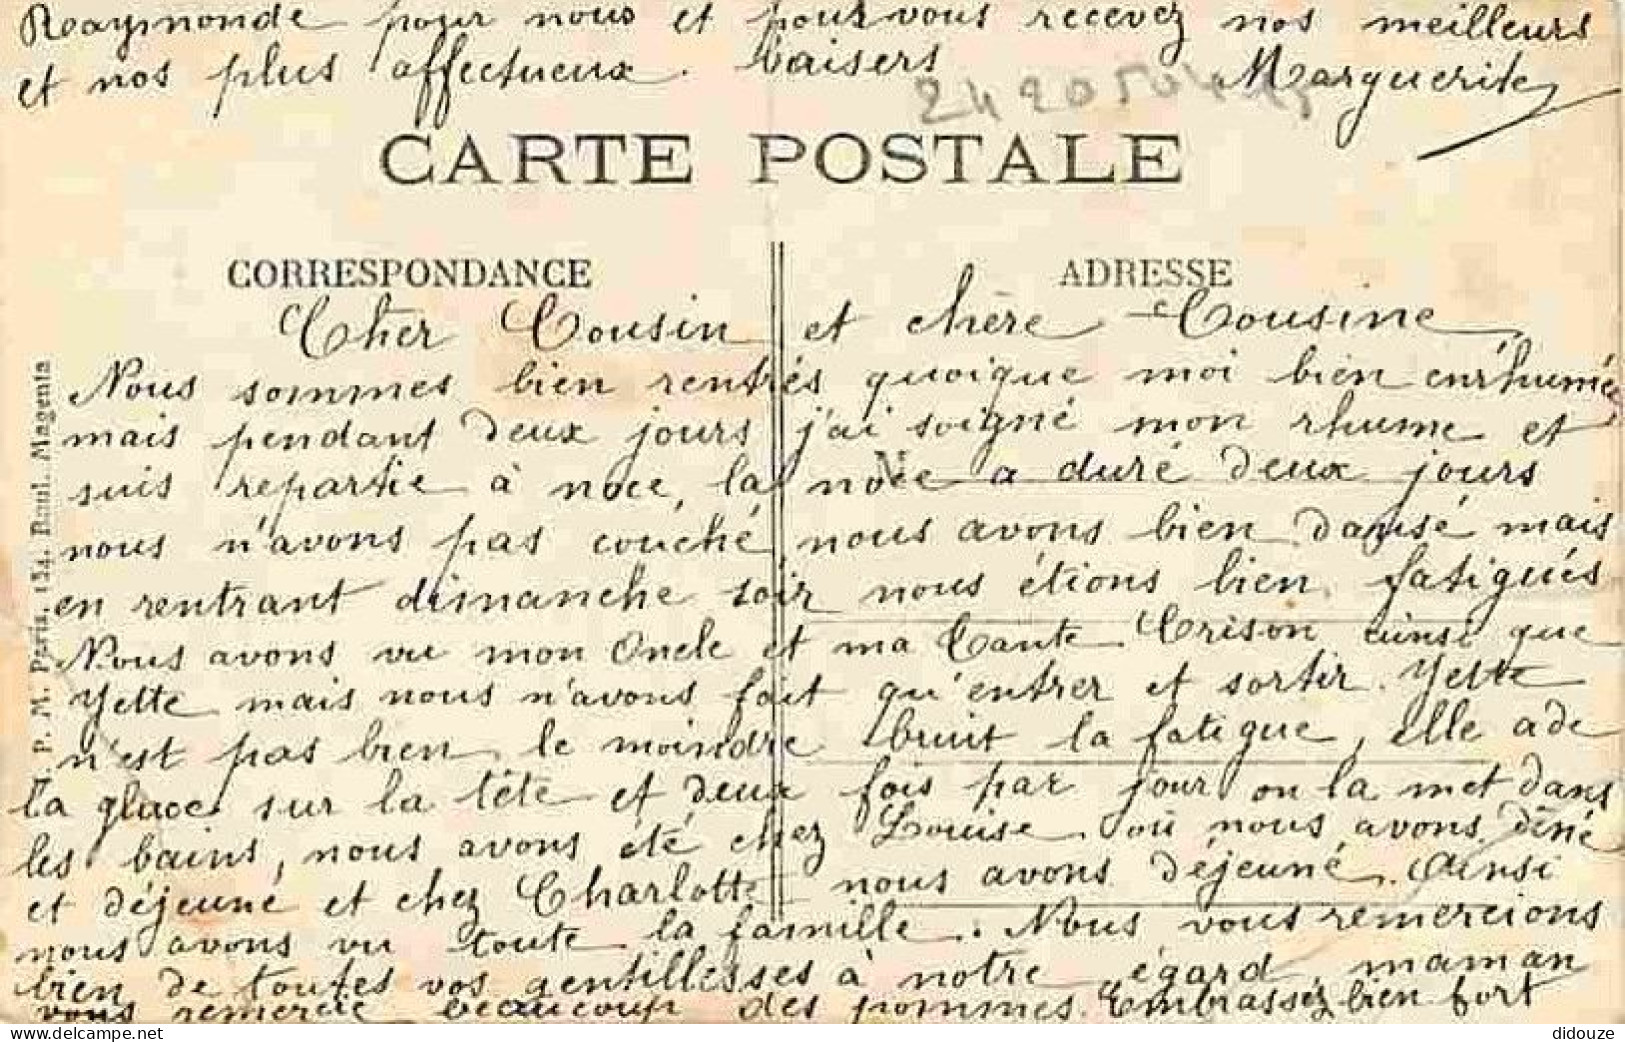 Raymonde pour nous et pour vous recevez nos meilleurs
et nos plus affectueux. baisers Marguerite
CARTE POSTALE
CORRESPONDANCE
ADRESSE
Cher Cousin et chère Cousine,
Nous sommes bien rentrés quoique moi bien enrhumée
mais pendant deux jours j'ai soigné mon rhume et
suis repartie à noce, la noce a duré deux jours
nous n'avons pas couché, nous avons bien dansé mais
en rentrant dimanche soir nous étions bien fatigués
Nous avons vu mon Oncle et ma Tante Crison ainsi que
Yette mais nous n'avons fait qu'entrer et sortir. Yette
n'est pas bien le moindre bruit la fatigue, elle a de
la glace sur la tête et deux fois par jour on la met dans
les bains, nous avons été chez Louise où nous avons dîné
et déjeuné et chez Charlotte nous avons déjeuné. Ainsi
nous avons vu toute la famille. Nous vous remercions
bien de toutes vos gentillesses à notre égard, maman
vous remercie beaucoup des pommes. Embrassez bien fort
P. M. Paris, 124, Boul. Magenta
didouze